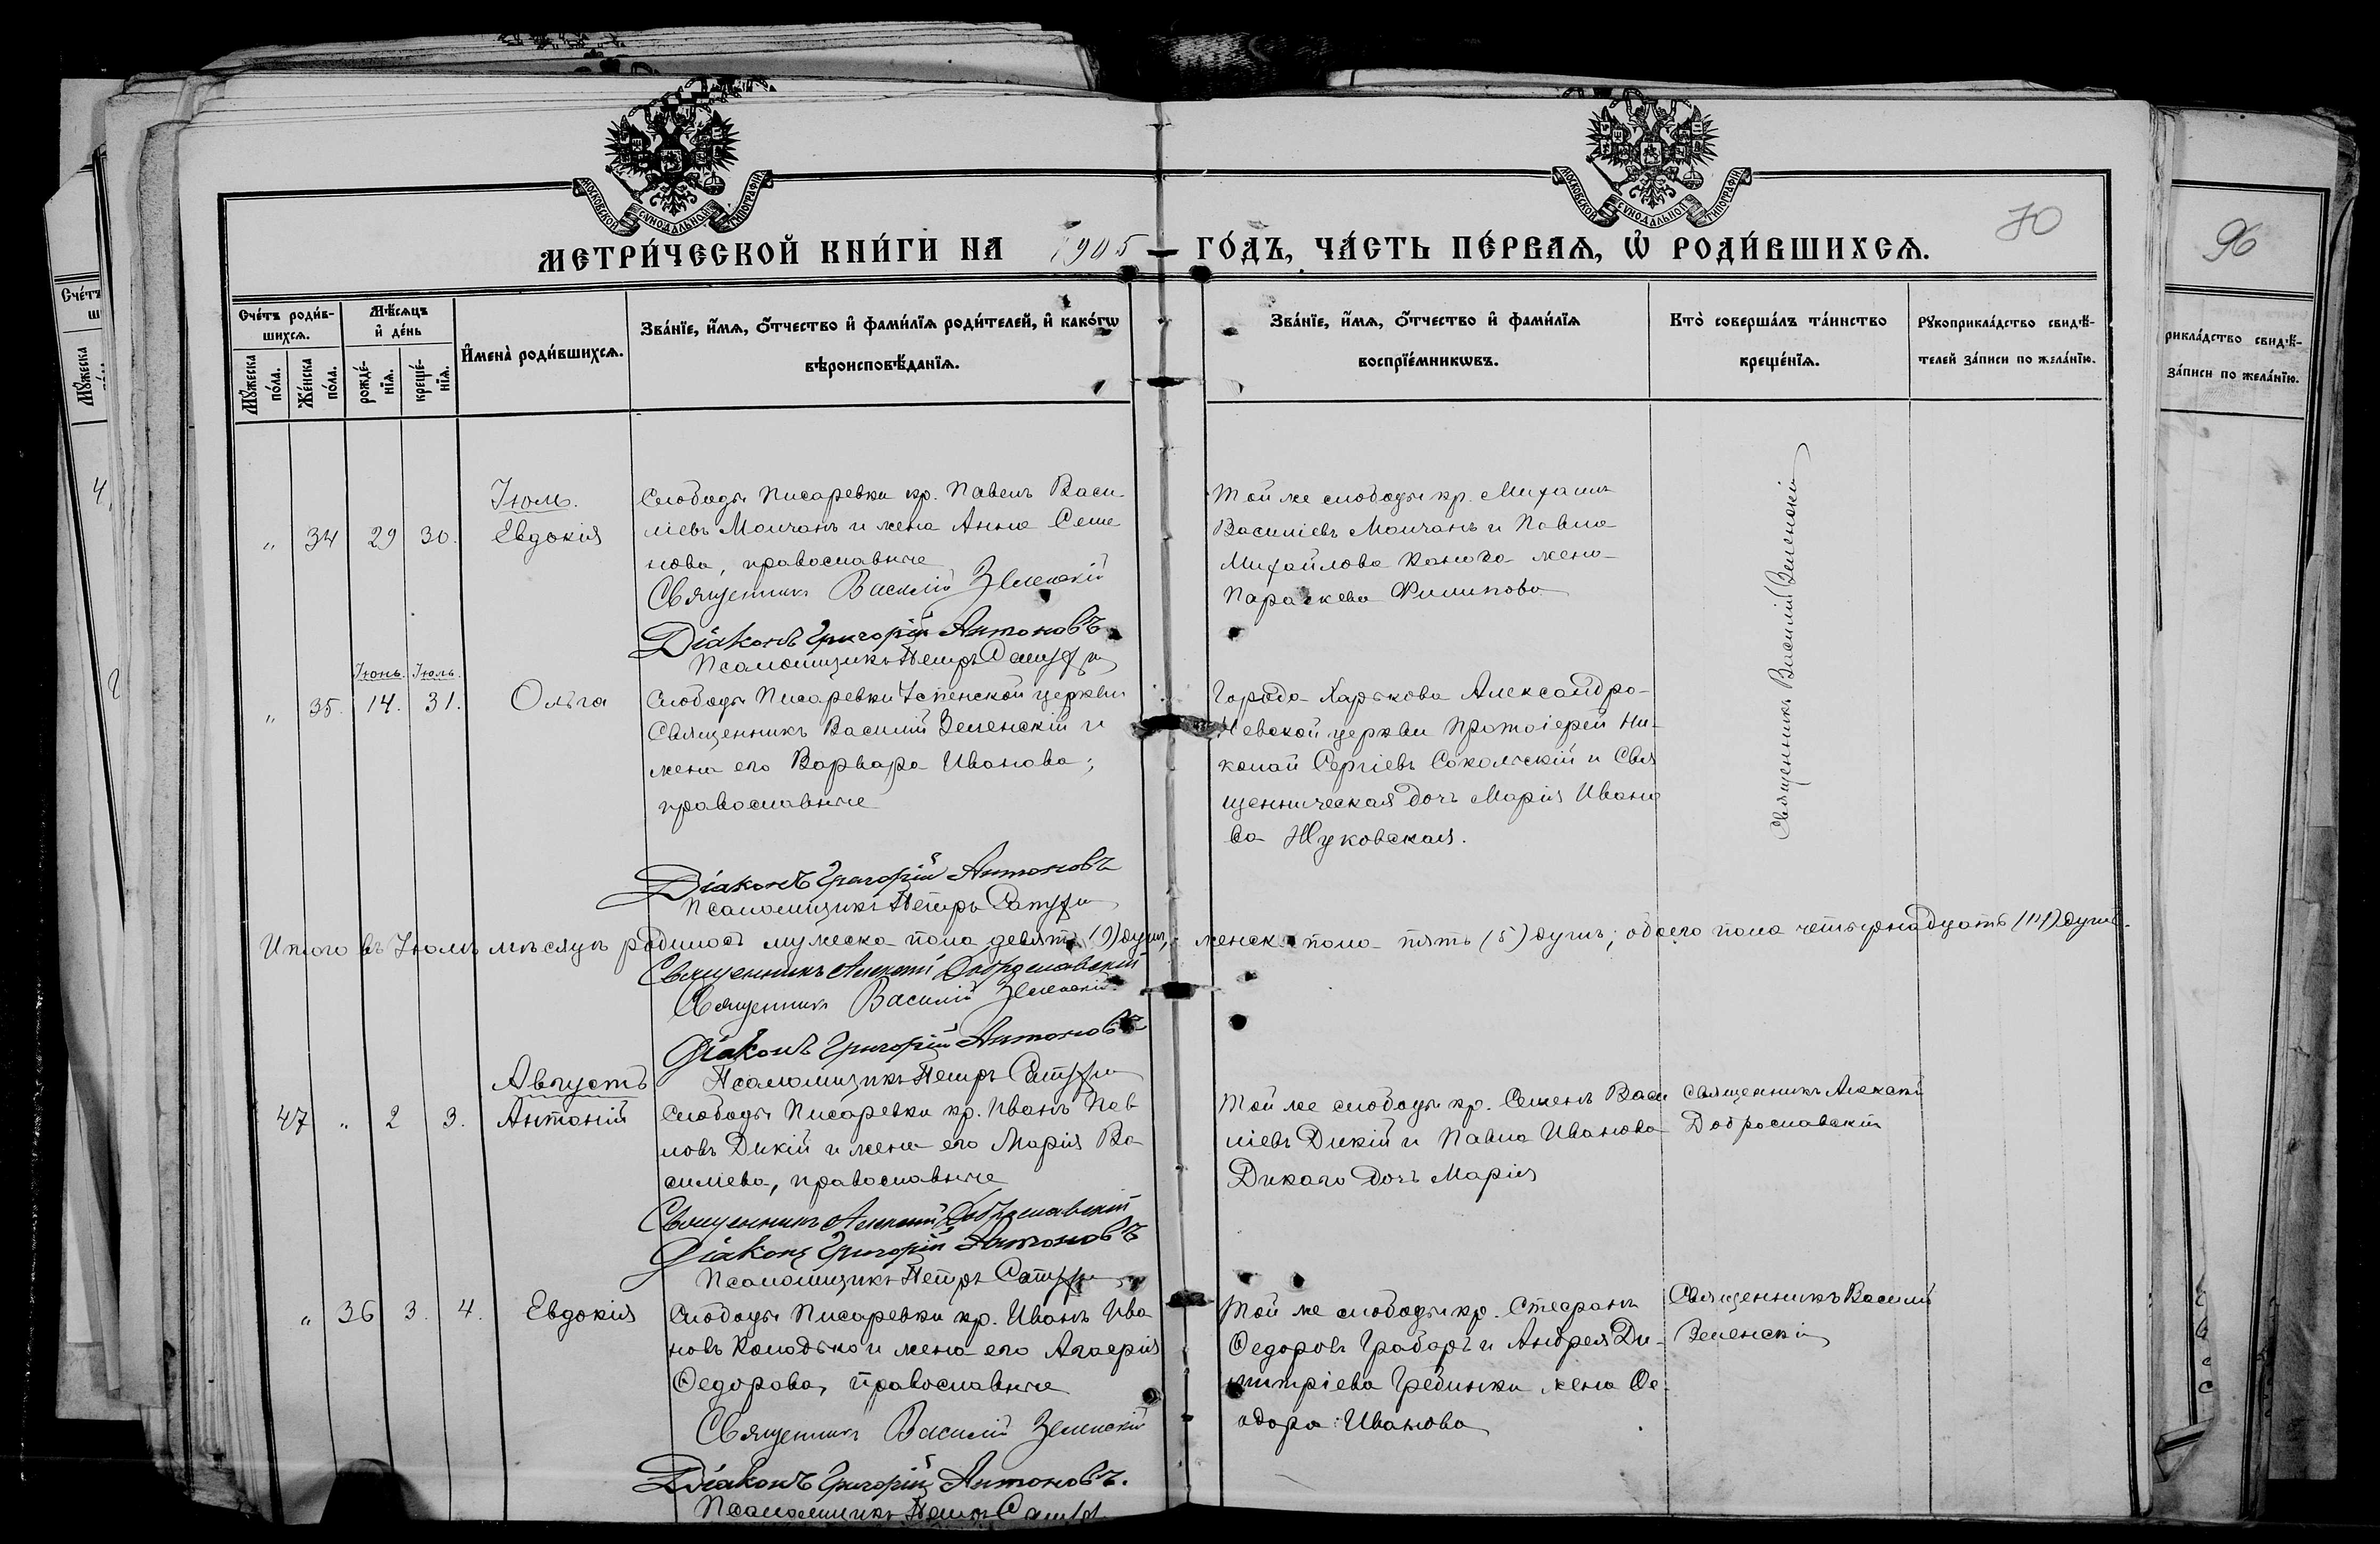 МОСКОВСКОЙ СУНОДАЛЬНОЙ ТИПОГРАФІИ
МОСКОВСКОЙ СУНОДАЛЬНОЙ ТИПОГРАФІИ
70
96
МЕТРИ́ЧЕСКОЙ КНИ́ГИ НА 1905 ГО́ДЪ, ЧА́СТЬ ПЕ́РВАѦ, Ѡ҆ РОДИ́ВШИХСѦ.
Сче́тъ роди́в-
шихсѧ.
Мꙋ́жеска
по́ла.
Же́нска
по́ла.
Мѣ́сѧцъ
и҆ де́нь
рожде́-
нїѧ.
креще́-
нїѧ.
И҆мена̀ роди́вшихсѧ.
Зва́нїе, и҆́мѧ, ѻ҆́тчество и҆ фами́лїѧ роди́телей, и҆ како́гѡ
вѣроисповѣ́данїѧ.
Зва́нїе, и҆́мѧ, ѻ҆́тчество и҆ фами́лїѧ
воспрїе́мникѡвъ.
Кто̀ соверша́лъ та́инство
креще́нїѧ.
Рꙋкоприкла́дство свидѣ́-
телей за́писи по жела́нїю.
Іюль.
„ 34 29 30. Евдокія
Слободы Писаревки кр. Павелъ Васи-
ліевъ Молчанъ и жена Анна Семе
нова, православные
Священникъ Василій Зеленскій
Діаконъ Григорій Антоновъ
Псаломщикъ Петръ
Той же слободы кр. Михаилъ
Василіевъ Молчанъ и Павла
Михайлова жена
Параскева Филипова
Священникъ Василій Зеленскій
Іюнь. Іюль.
„ 35. 14. 31. Ольга
Слободы Писаревки Успенской церкви
Священникъ Василій Зеленскій и
жена его Варвара Иванова;
православные
Діаконъ Григорій Антоновъ
Псаломщикъ Петръ
Города Харькова Александро-
Невской церкви Протоіерей Ни-
колай Сергіевъ Сокольскій и Свя
щенническая дочь Марія Ивано
ва Жуковская.
Итого въ Іюлѣ мѣсяцѣ родилось мужеска пола девять (9) душъ, женска пола пять (5) душъ; обоего пола четырнадцать (14) душъ.
Священникъ Алексій Доброславскій
Священникъ Василій Зеленскій
Діаконъ Григорій Антоновъ
Псаломщикъ Петръ
Августъ
47 „ 2 3. Антоній
Слободы Писаревки кр. Иванъ Пав
ловъ Дикій и жена его Марія Ва
силіева, православные
Священникъ Алексій Доброславскій
Діаконъ Григорій Антоновъ
Псаломщикъ Петръ
Той же слободы кр. Семенъ Васи
ліевъ Дикій и Павла Иванова
Дикаго дочь Марія
Священникъ Алексій
Доброславскій
„ 36 3. 4. Евдокія
Слободы Писаревки кр. Иванъ Ива
новъ Колодько и жена его Агаѳрія
Ѳедорова, православные
Священникъ Василій Зеленскій
Діаконъ Григорій Антоновъ.
Псаломщикъ Петръ
Той же слободы кр. Стефанъ
Ѳедоровъ Грабарь и Андрея Ди-
митріева Гребинки жена Ѳе-
одора Иванова
Священникъ Василій
Зеленскій